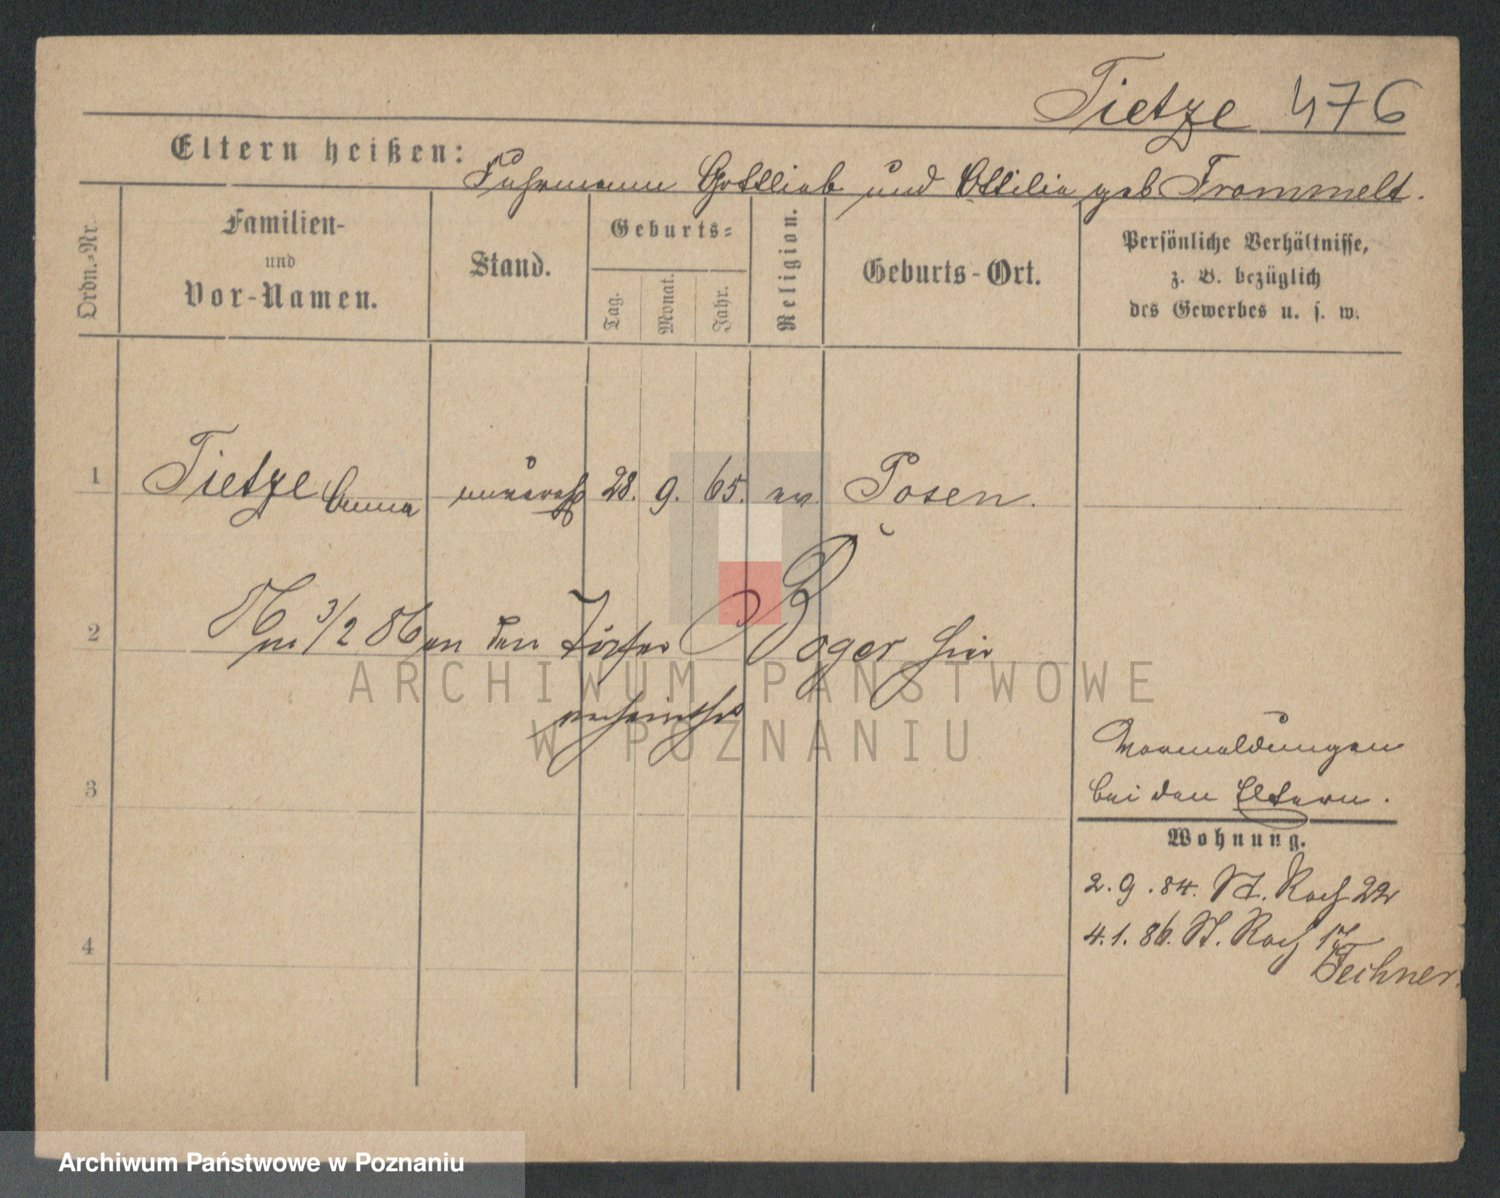 Tietze 476
Eltern heißen: Fuhrmann Gottlieb und Ottilie geb Frommelt.
Ordn.-Nr.
Familien-
und
Vor-Namen.
Stand.
Geburts-
Tag.
Monat.
Jahr.
Religion.
Geburts-Ort.
Persönliche Verhältnisse,
z. B. bezüglich
des Gewerbes u. s. w.
1 Tietze Anna unvereh 28. 9. 65. ev. Posen.
2 Am 3/2 86 an den Boger hier
verheirathet
ARCHIWUM PAŃSTWOWE
W POZNANIU
3
Vormeldungen
bei den Eltern.
Wohnung.
2.9.84. St. Roch 22
4 4.1.86. St. Roch 17
Techner.
Archiwum Państwowe w Poznaniu